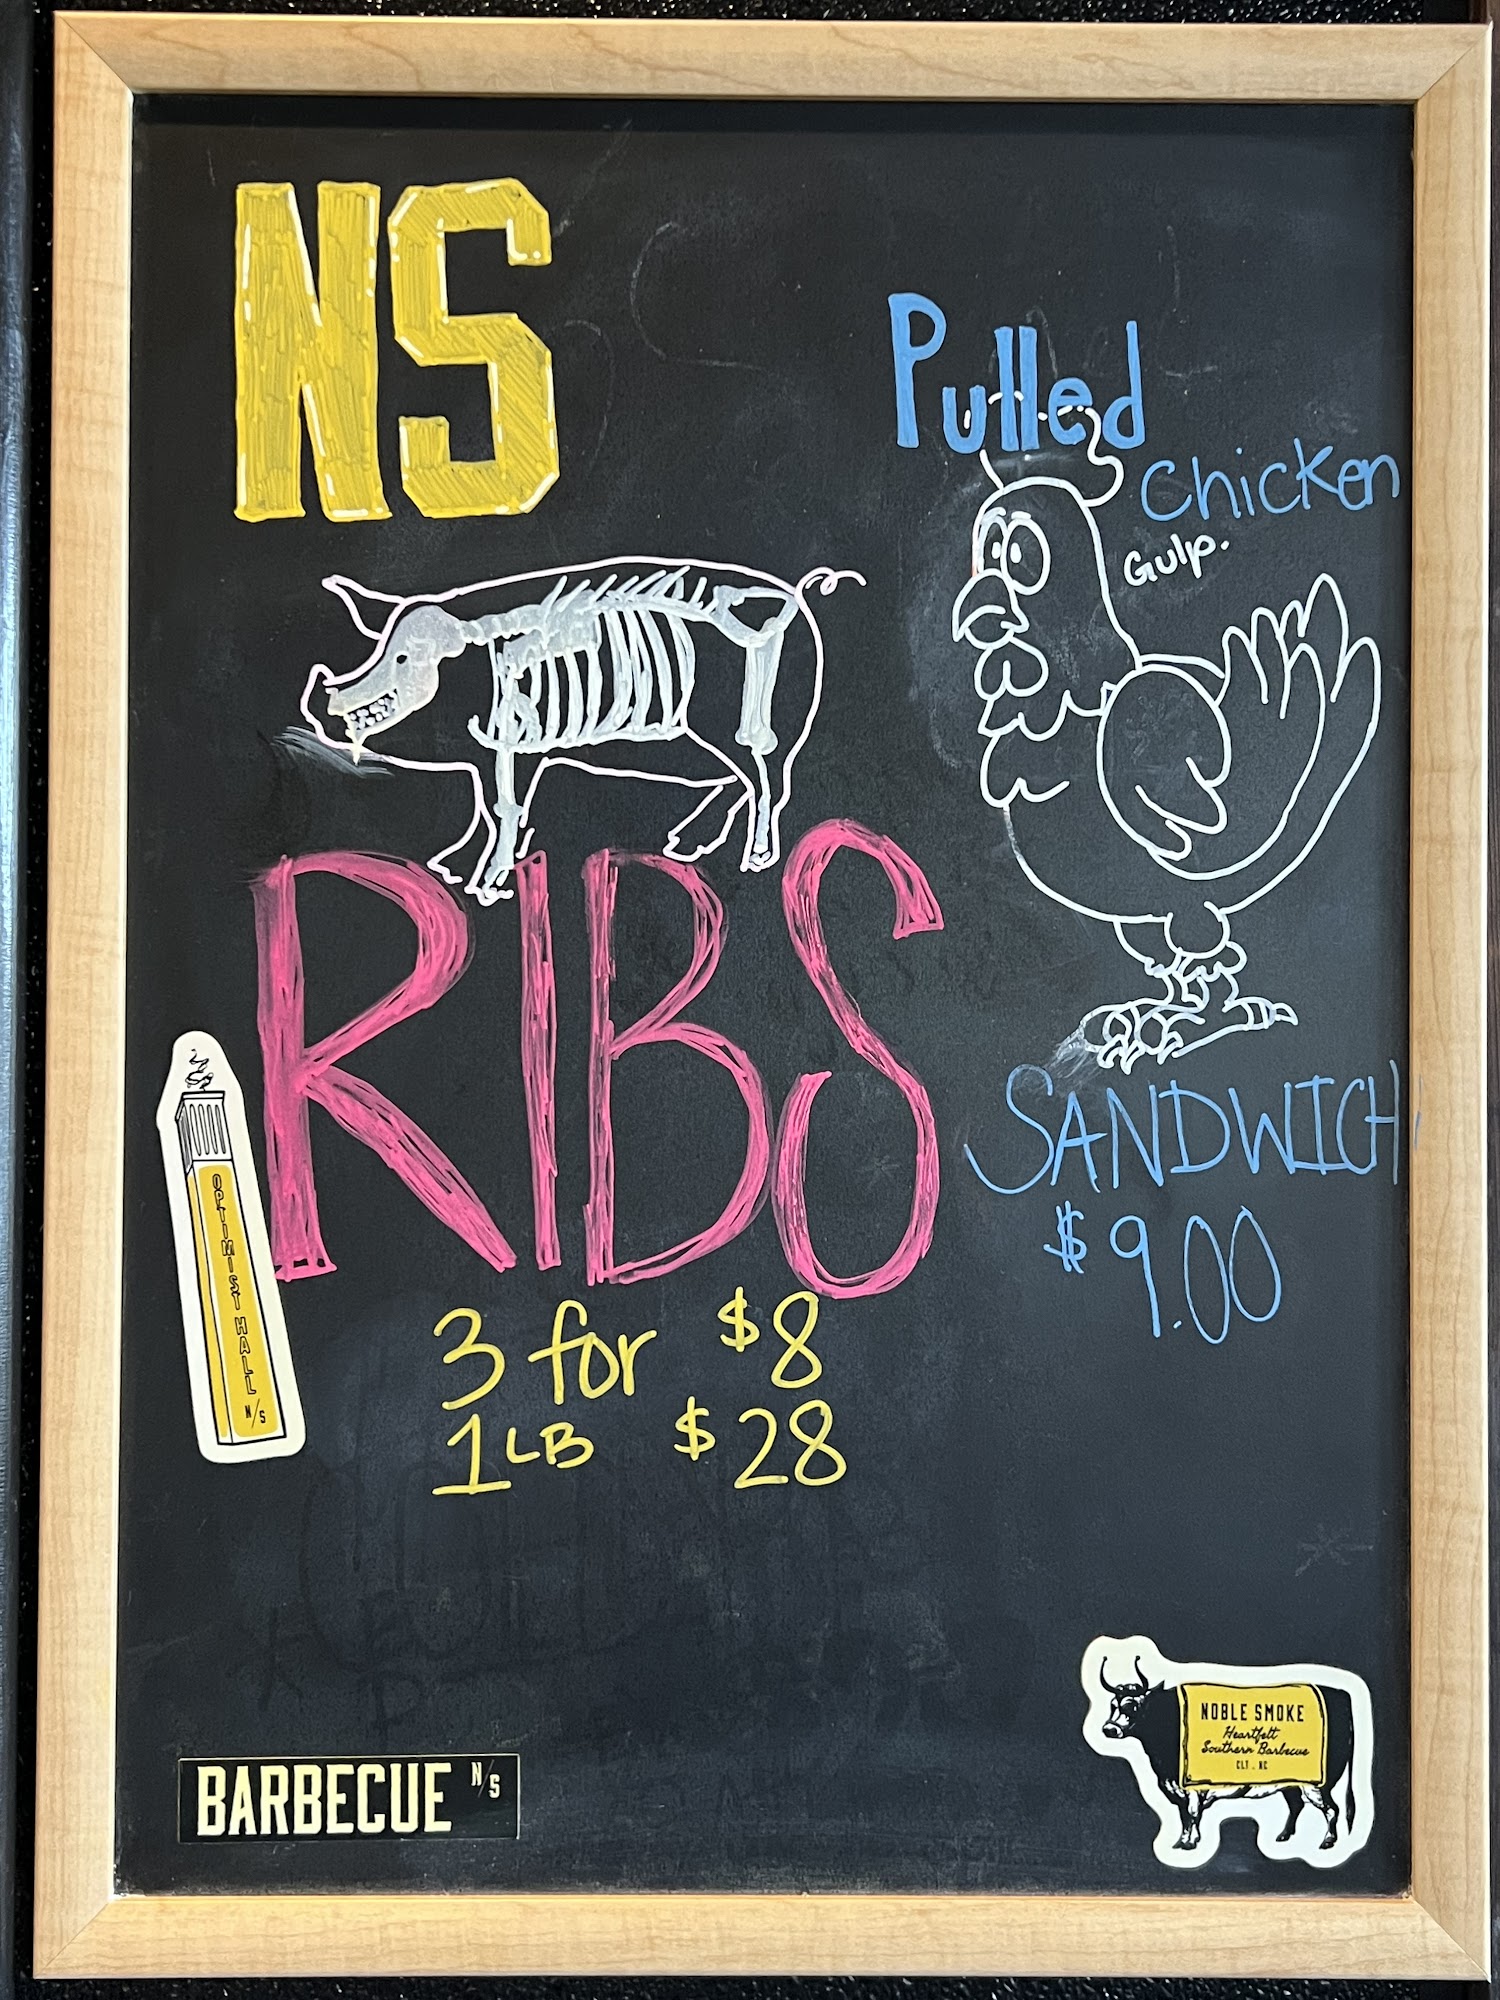 NS
Pulled
Chicken
Gulp.
RIBS
SANDWICH
$9.00
3 for $8
1 LB $28
OPTIMIST HALL N/S
BARBECUE N/S
NOBLE SMOKE
Heartfelt
Southern Barbecue
CLT . NC